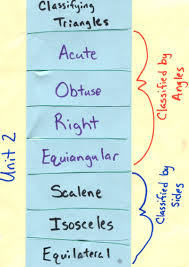 Classifying
Triangles
Acute
Obtuse
Right
Equiangular
Scalene
Isosceles
Equilateral
Classified by
Angles
Classified by
Sides
Unit 2